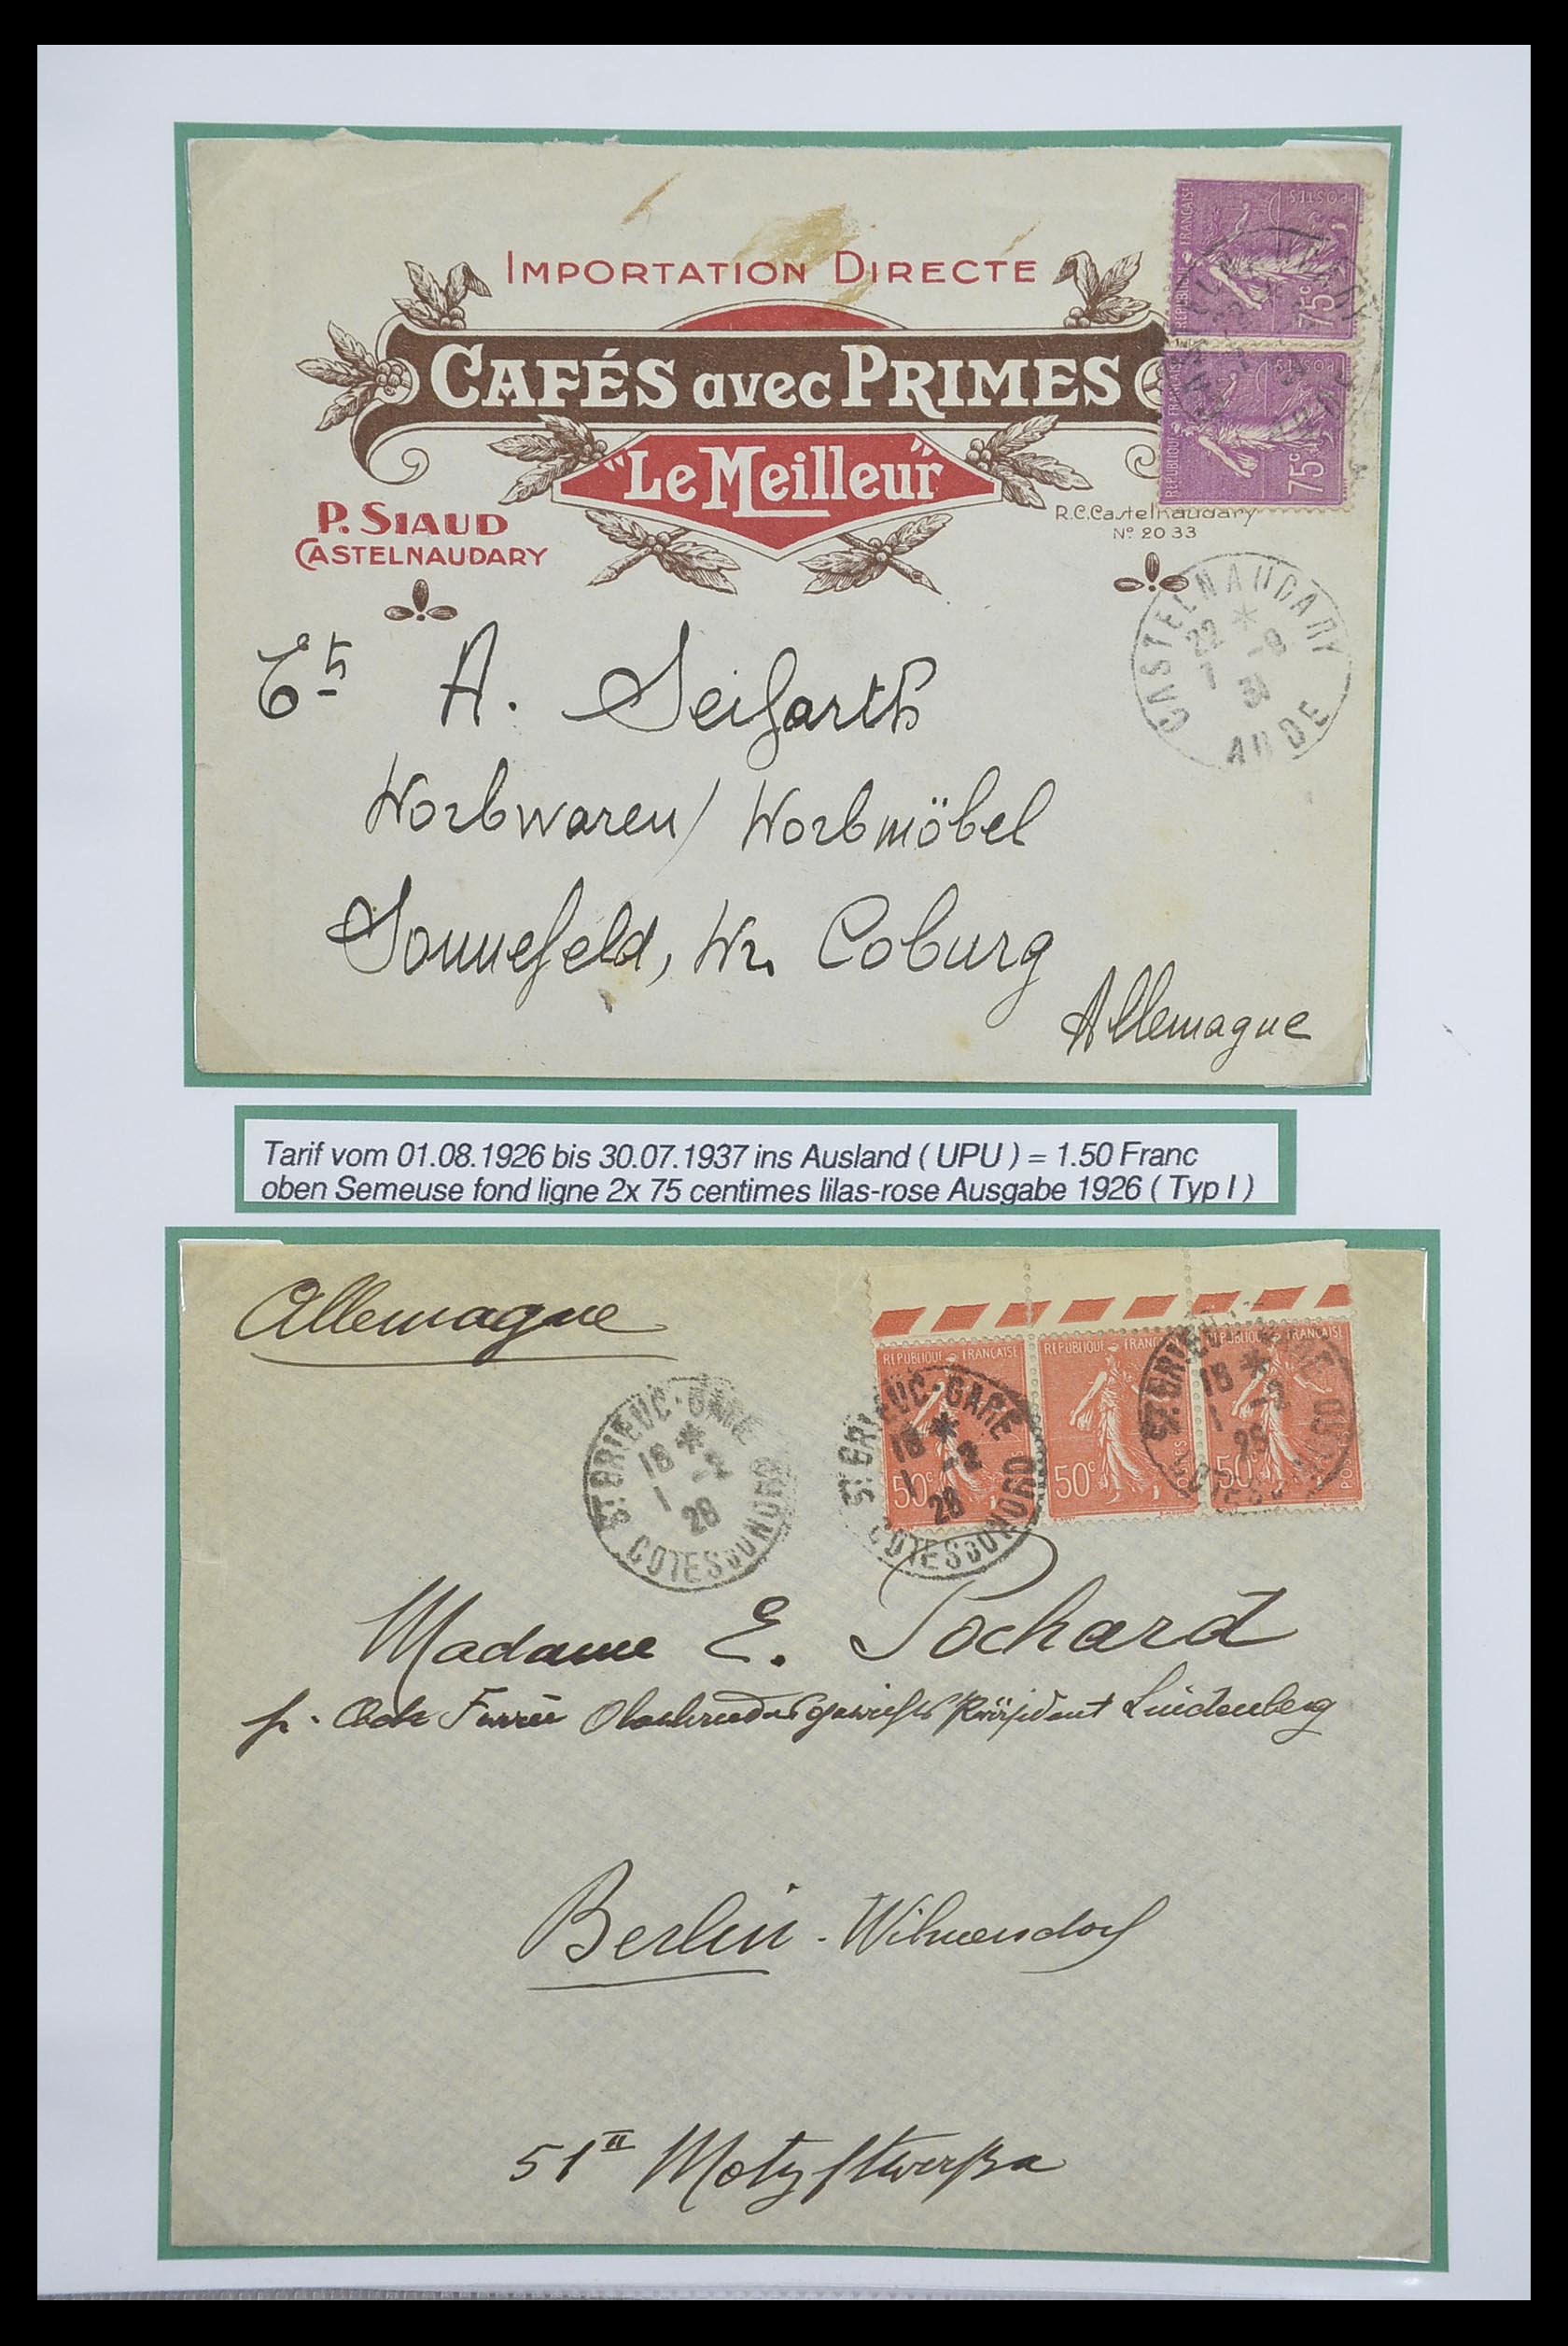 IMPORTATION DIRECTE
CAFÉS avec PRIMES
"Le Meilleur"
P. SIAUD
CASTELNAUDARY
R.C. Castelnaudary
No 20 33
REPUBLIQUE FRANÇAISE
POSTES
75c
REPUBLIQUE FRANÇAISE
POSTES
75c
CASTELNAUDARY
22 * -9
1 31
AUDE
Ets A. Seifarth
Korbwaren / Korbmöbel
Sonnefeld, Kr. Coburg
Allemagne
Tarif vom 01.08.1926 bis 30.07.1937 ins Ausland ( UPU ) = 1.50 Franc
oben Semeuse fond ligne 2x 75 centimes lilas-rose Ausgabe 1926 ( Typ I )
Allemagne
REPUBLIQUE FRANÇAISE
50c
REPUBLIQUE FRANÇAISE
50c
POSTES
REPUBLIQUE FRANÇAISE
50c
POSTES
ST BRIEUC-GARE
18 *
1 -2
28
COTES DU NORD
ST BRIEUC-GARE
18 *
1 -2
28
COTES DU NORD
ST BRIEUC-GARE
18 *
1 -2
28
COTES DU NORD
Madame E. Pochard
p. Präsident Lindenberg
Berlin - Wilmersdorf
51 II